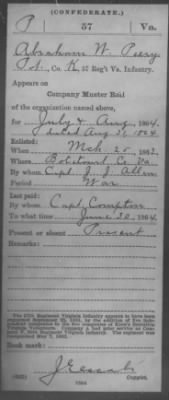 (CONFEDERATE.)
P 57 Va.
Abraham W. Peery
Pvt., Co. K, 57 Reg't Va. Infantry.
Appears on
Company Muster Roll
of the organization named above,
for July & Aug, 1864.
dated Aug 31, 1864
Enlisted:
When Mch 25, 1862.
Where Botetourt Co. Va
By whom Capt. J. J. Allen
Period War
Last paid:
By whom Capt. Compton
To what time June 30, 1864.
Present or absent Present
Remarks:
Book mark:
Copyist.